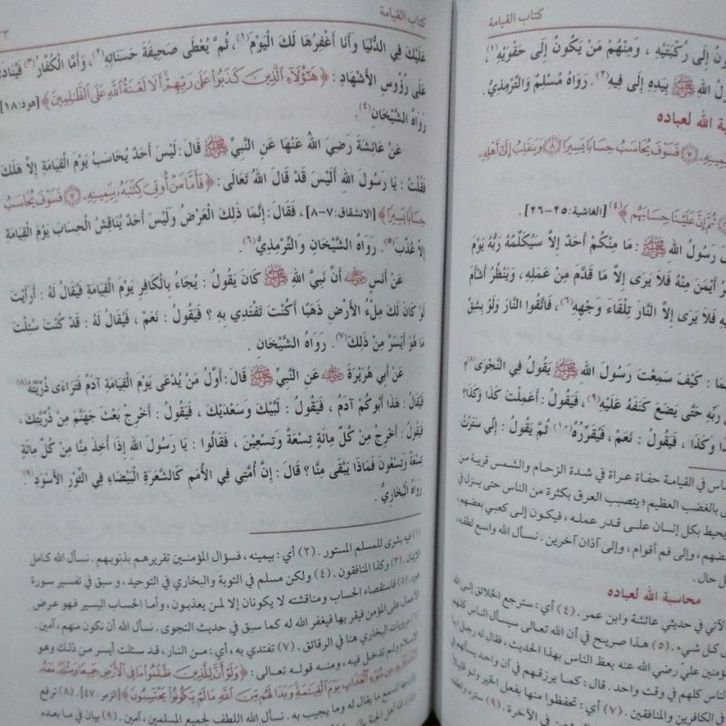 كتاب القيامة
ـون إلى ركبتيه ، ومنهم من يكون إلى حقويه (١)
ـل الله ﷺ بيده إلى فيه (٢). رواه مسلم والترمذي .
ـبة الله لعباده
فَسَوْفَ يُحَاسَبُ حِسَابًا يَسِيرًا ۝ وَيَنقَلِبُ إِلَىٰ أَهْلِهِ
ثُمَّ إِنَّ عَلَيْنَا حِسَابَهُم ﴾(٤) [الغاشية: ٢٥-٢٦] .
رسول الله ﷺ : ما منكم أحد إلا سيكلمه ربه يوم
أيمن منه فلا يرى إلا ما قدم من عمله، وينظر أشأم
ـه فلا يرى إلا النار تلقاء وجهه (٦)، فاتقوا النار ولو بشق
ـما : كيف سمعت رسول الله ﷺ يقول في النجوى؟
ربه حتى يضع كنفه عليه (٩)، فيقول : أعملت كذا وكذا؟
ـذا وكذا ، فيقول : نعم ، فيقرره (١٠) ثم يقول : إني سترت
ـاس في القيامة حفاة عراة في شدة الزحام والشمس قريبة من
بالغضب العظيم؛ يتصبب العرق بكثرة من الناس حتى ينزل في
يحيط بكل إنسان على قدر عمله، فيكون إلى كعبي بعضهم،
ـضهم، وإلى فم أقوام، وإلى آذان آخرين. نسأل الله واسع لطفه،
ـل حال .
محاسبة الله لعباده
الآتي في حديثي عائشة وابن عمر. (٤) أي: سترجع الخلائق إلى الله
كل شيء. (٥) هذا صريح في أن الله تعالى سيسأل الناس كلهم
ـؤمنين علي رضي الله عنه يعظ الناس بهذا الحديث، فقال له رجل:
الناس كلهم في وقت واحد. قال: كما يرزقهم في آن واحد يسألهم في
(٧) أي: تحفظوا منها بفعل الخير ولو
كالكافرين والمنافقين. (٩) ستره
كتاب القيامة
عليك في الدنيا وأنا أغفرها لك اليوم (١)، ثم يعطى صحيفة حسناته (٢)، وأما الكفار (٣) فينادى
على رؤوس الأشهاد: ﴿ هَٰؤُلَاءِ الَّذِينَ كَذَبُوا عَلَىٰ رَبِّهِمْ أَلَا لَعْنَةُ اللَّهِ عَلَى الظَّالِمِينَ ﴾ [هود: ١٨]
رواه الشيخان (٤).
عن عائشة رضي الله عنها عن النبي ﷺ قال: ليس أحد يحاسب يوم القيامة إلا هلك
فقلت : يا رسول الله أليس قد قال الله تعالى : ﴿ فَأَمَّا مَنْ أُوتِيَ كِتَابَهُ بِيَمِينِهِ ۝ فَسَوْفَ يُحَاسَبُ
حِسَابًا يَسِيرًا ﴾ [الانشقاق: ٧-٨] ، فقال : إنما ذلك العرض وليس أحد يناقش الحساب يوم القيامة
إلا عذب (٥). رواه الشيخان والترمذي (٦).
عن أنس ﷺ أن نبي الله ﷺ كان يقول : يجاء بالكافر يوم القيامة فيقال له : أرأيت
لو كان لك ملء الأرض ذهبا أكنت تفتدي به ؟ فيقول : نعم ، فيقال له : قد كنت سئلت
ما هو أيسر من ذلك (٧). رواه الشيخان .
عن أبي هريرة عن النبي ﷺ قال: أول من يدعى يوم القيامة آدم فتراءى ذريته (٨)
فيقال : هذا أبوكم آدم ، فيقول : لبيك وسعديك ، فيقول : أخرج بعث جهنم من ذريتك ،
فيقول : أخرج من كل مائة تسعة وتسعين ، فقالوا : يا رسول الله إذا أخذ منا من كل مائة
تسعة وتسعون فماذا يبقى منا ؟ قال : إن أمتي في الأمم كالشعرة البيضاء في الثور الأسود (٩).
رواه البخاري .
(١) فيه بشرى للمسلم المستور. (٢) أي: بيمينه، فسؤال المؤمنين تقريرهم بذنوبهم. نسأل الله كامل
الإيمان. (٣) وكذا المنافقون. (٤) ولكن مسلم في التوبة والبخاري في التوحيد، وسبق في تفسير سورة
هود. (٥) فاستقصاء الحساب ومناقشته لا يكونان إلا لمن يعذبون، وأما الحساب اليسير فهو عرض
الأعمال على المؤمن فيقر بها فيغفر الله له كما سبق في حديث النجوى. نسأل الله أن نكون منهم، آمين.
مرويات البخاري هنا في الرقائق. (٧) تفتدي به، أي: من النار، قد سئلت أيسر من ذلك وهو
الإسلام ولم تدخل فيه، ومنه قوله تعالى: ﴿ وَلَوْ أَنَّ لِلَّذِينَ ظَلَمُوا مَا فِي الْأَرْضِ جَمِيعًا وَمِثْلَهُ مَعَهُ
سُوءِ الْعَذَابِ يَوْمَ الْقِيَامَةِ وَبَدَا لَهُم مِّنَ اللَّهِ مَا لَمْ يَكُونُوا يَحْتَسِبُونَ ﴾ [الزمر: ٤٧]. (٨) ترفع
تسمع ما يقال له وما يجيب به. نسأل الله اللطف لجميع المسلمين، آمين. (٩) بيان في ما بعده